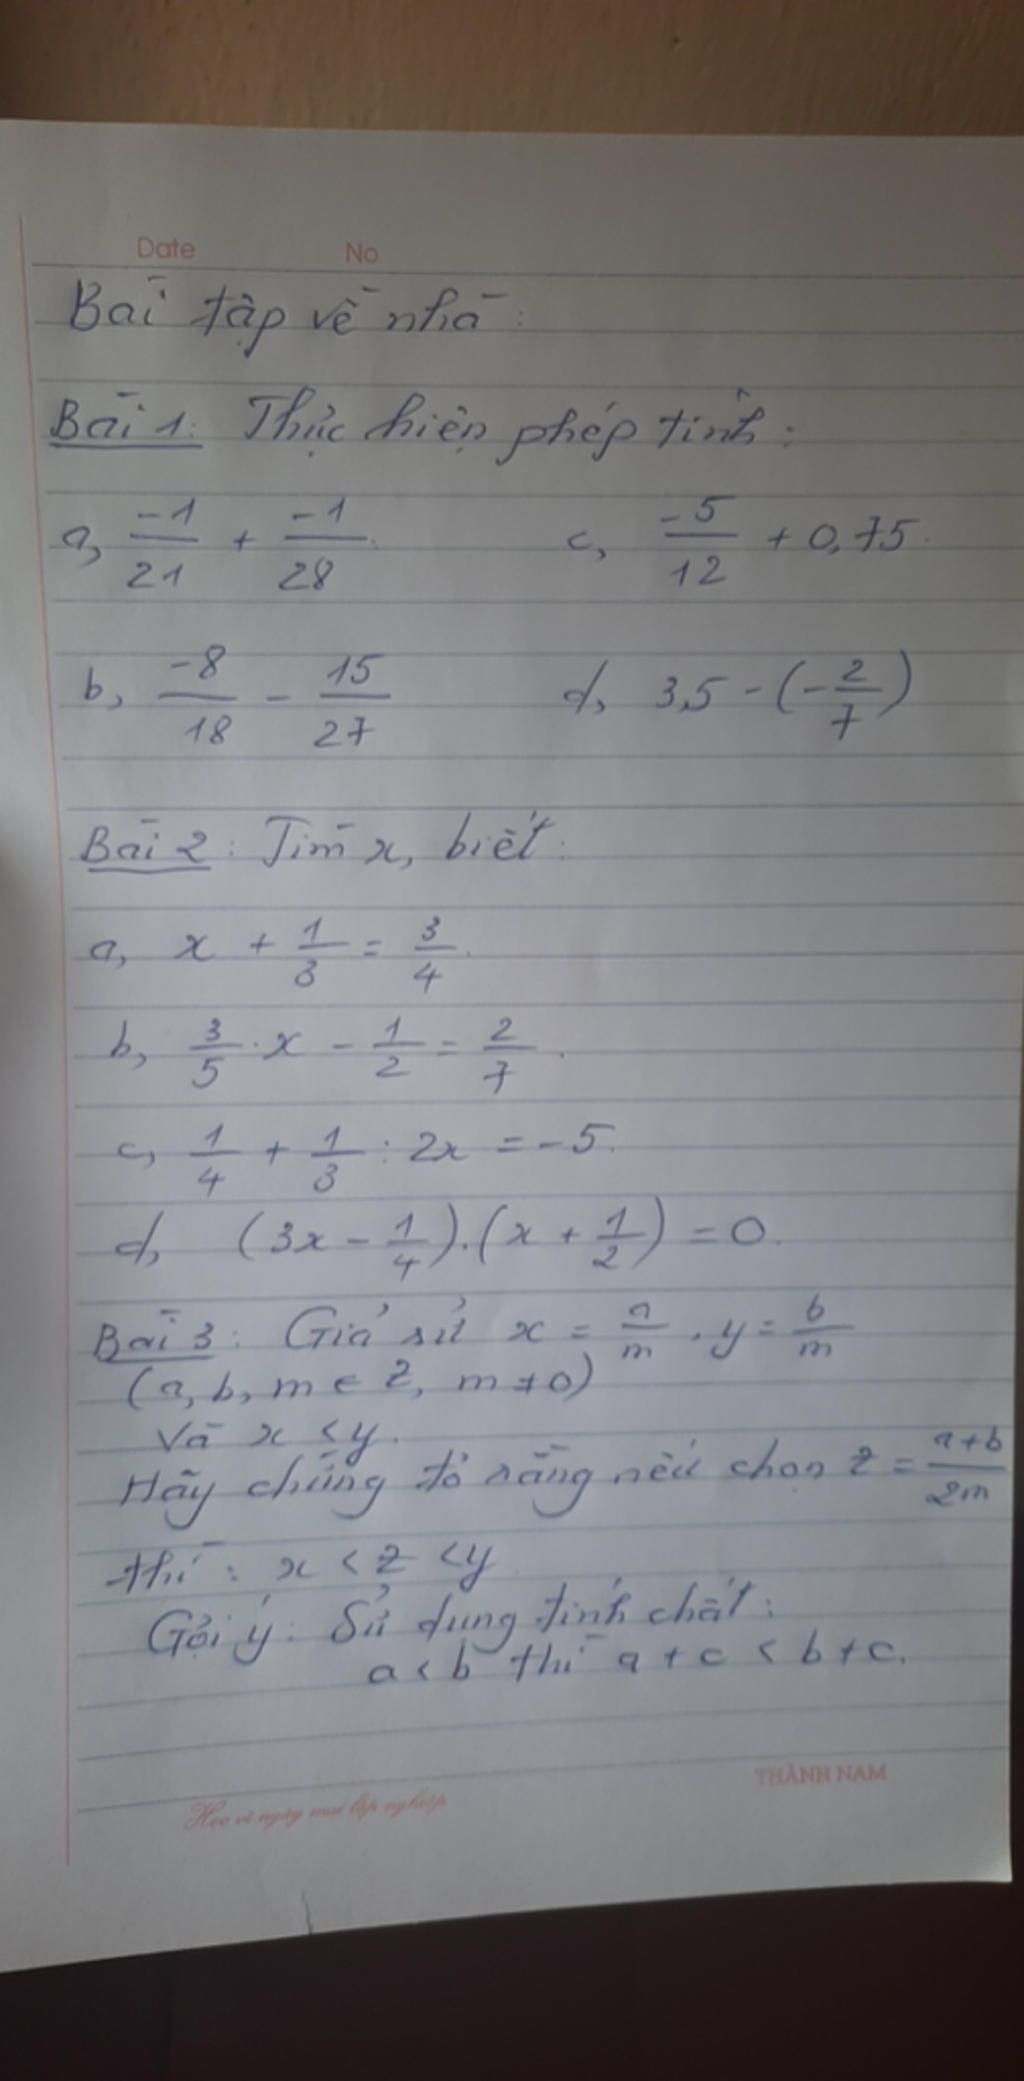 Date No
Bài tập về nhà:
Bài 1: Thực hiện phép tính:
a, -1/21 + -1/28. c, -5/12 + 0,75.
b, -8/18 - 15/27 d, 3,5 - (-2/7)
Bài 2: Tìm x, biết:
a, x + 1/3 = 3/4.
b, 3/5 . x - 1/2 = 2/7.
c, 1/4 + 1/3 : 2x = -5.
d, (3x - 1/4).(x + 1/2) = 0.
Bài 3: Giả sử x = a/m, y = b/m
(a, b, m ∈ Z, m ≠ 0)
Và x < y.
Hãy chứng tỏ rằng nếu chọn z = a+b/2m
thì: x < z < y
Gợi ý: Sử dụng tính chất:
a < b thì a + c < b + c.
THÀNH NAM
Học vì ngày mai lập nghiệp